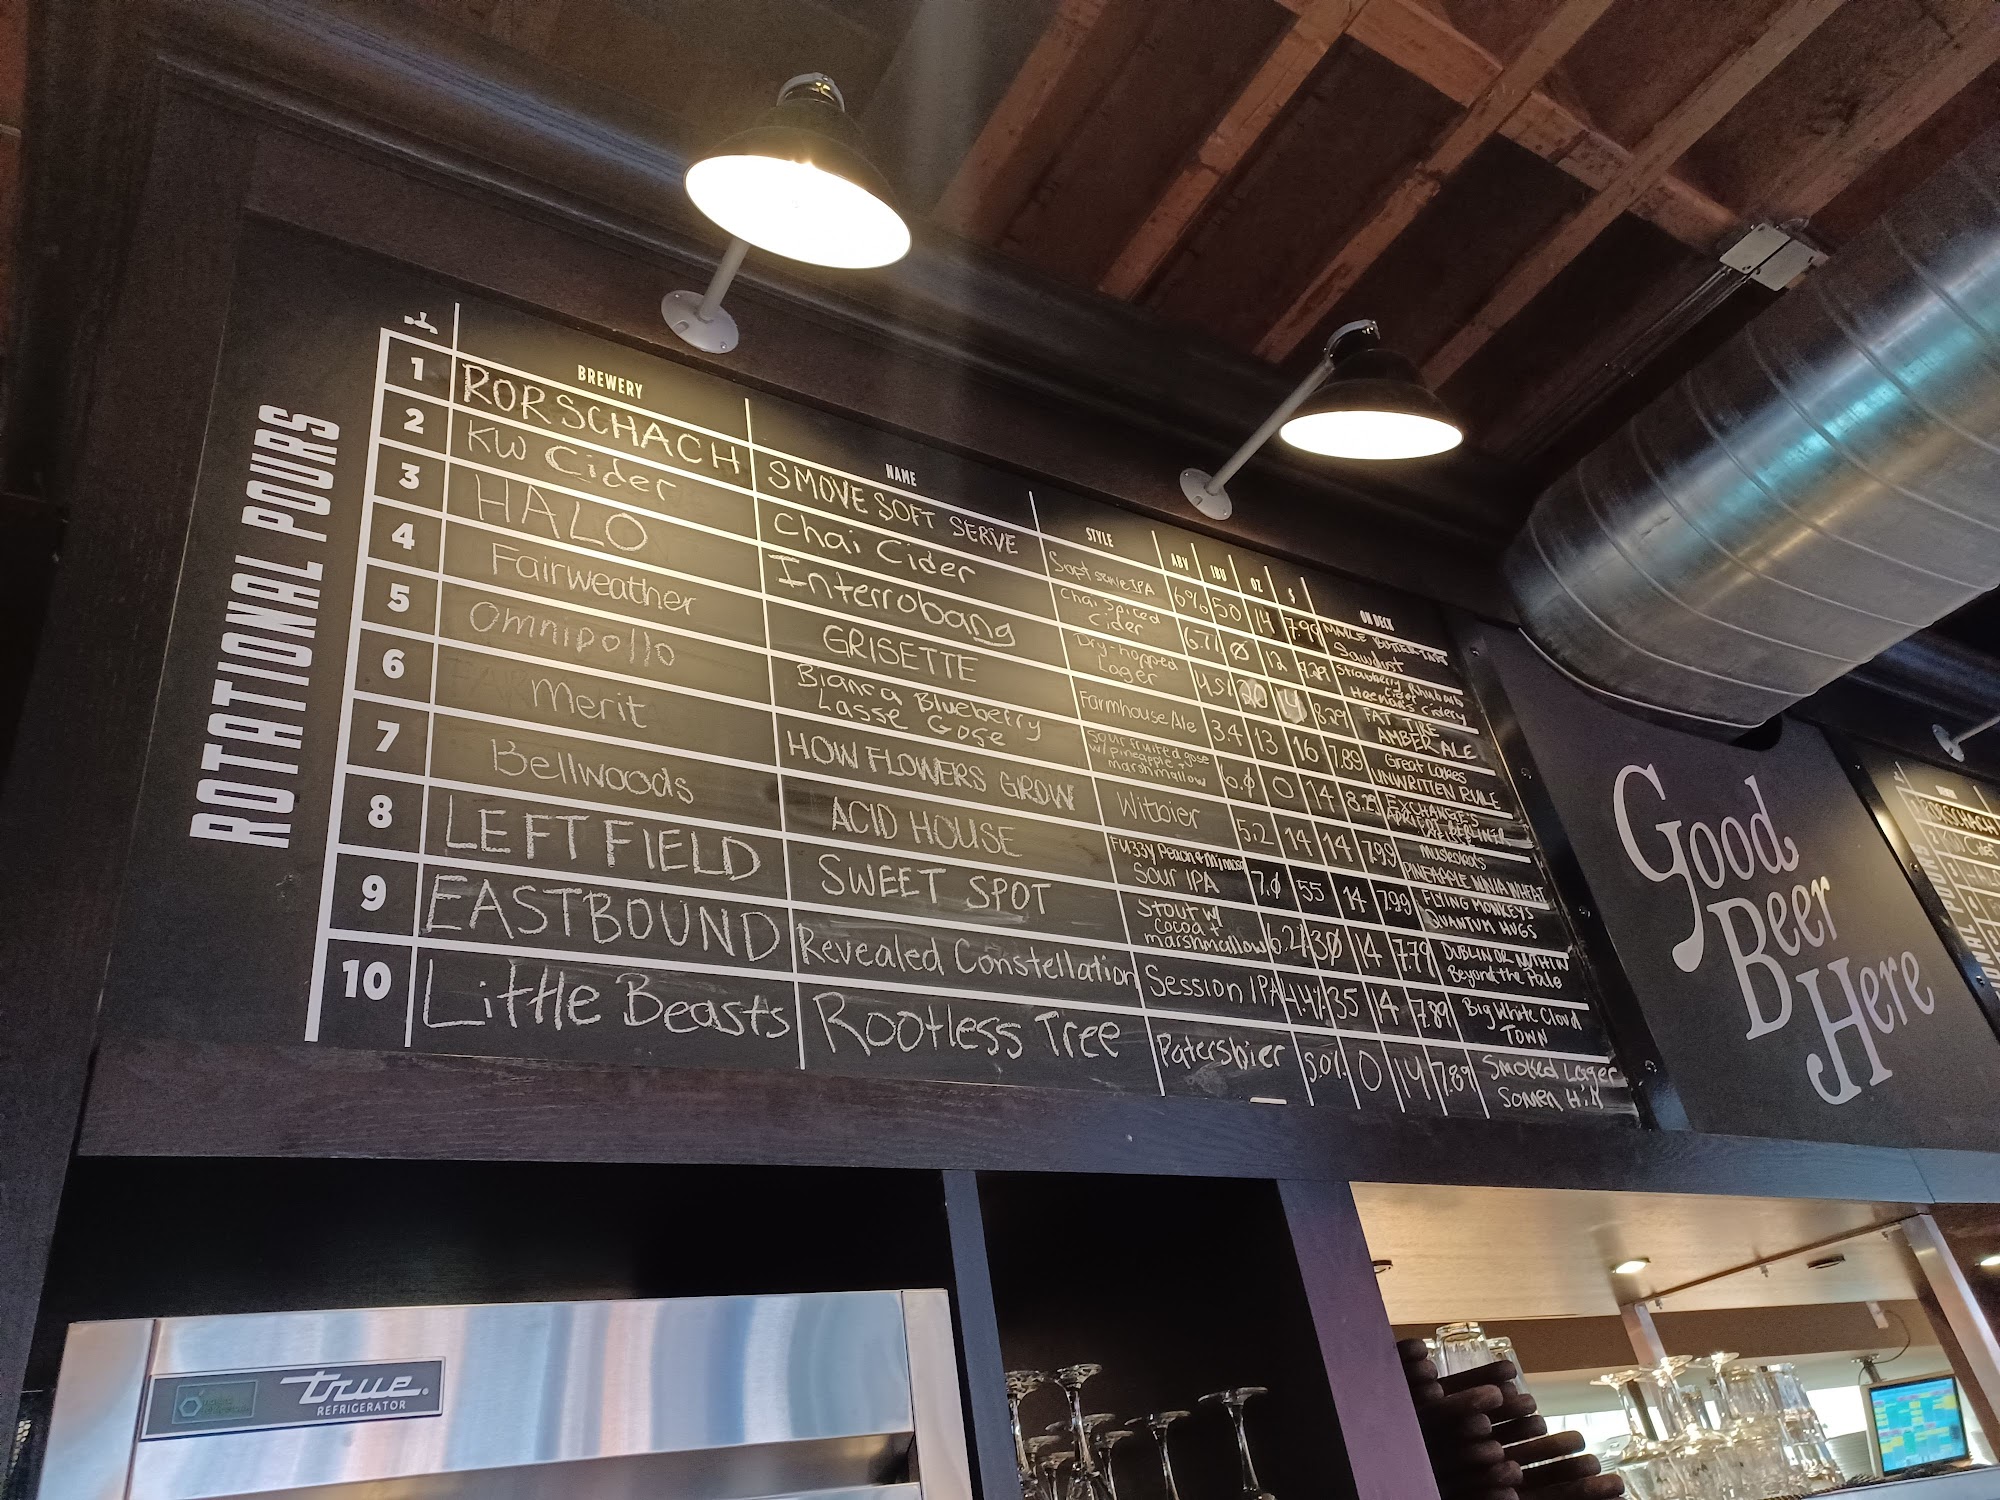 ROTATIONAL POURS
BREWERY NAME STYLE ABV IBU OZ $ ON DECK
1 RORSCHACH SMOVE SOFT SERVE Soft serve IPA 6% 50 14 7.99 BUTTER TART
Sawdust
2 KW Cider Chai Cider Chai Spiced 6.7% 0 12 9.29 Strawberry Rhubarb
Cider Cider
3 HALO Interrobang Dry-hopped 4.5% 20 14 8.29 FAT TIRE
Lager AMBER ALE
4 Fairweather GRISETTE Farmhouse Ale 3.4 13 16 7.89 Great Lakes
UNWRITTEN RULE
5 Omnipollo Bianca Blueberry Sour fruited gose 6.0 0 14 8.29 EXCHANGE'S
Lasse Gose w/ pineapple +
marshmallow
6 Merit HOW FLOWERS GROW Witbier 5.2 14 14 7.99
7 Bellwoods ACID HOUSE Fuzzy Peach & Mimosa 7.0 55 14 7.99 FLYING MONKEYS
Sour IPA QUANTUM HUGS
8 LEFT FIELD SWEET SPOT Stout w/ 6.2% 30 14 7.79
Cocoa + Beyond the Pale
marshmallow
9 EASTBOUND Revealed Constellation Session IPA 4.4% 35 14 7.89 Big White Cloud
TOWN
10 Little Beasts Rootless Tree Patersbier 5.0% 0 14 7.89 Smoked Lager
Good
Beer
Here
true
REFRIGERATOR